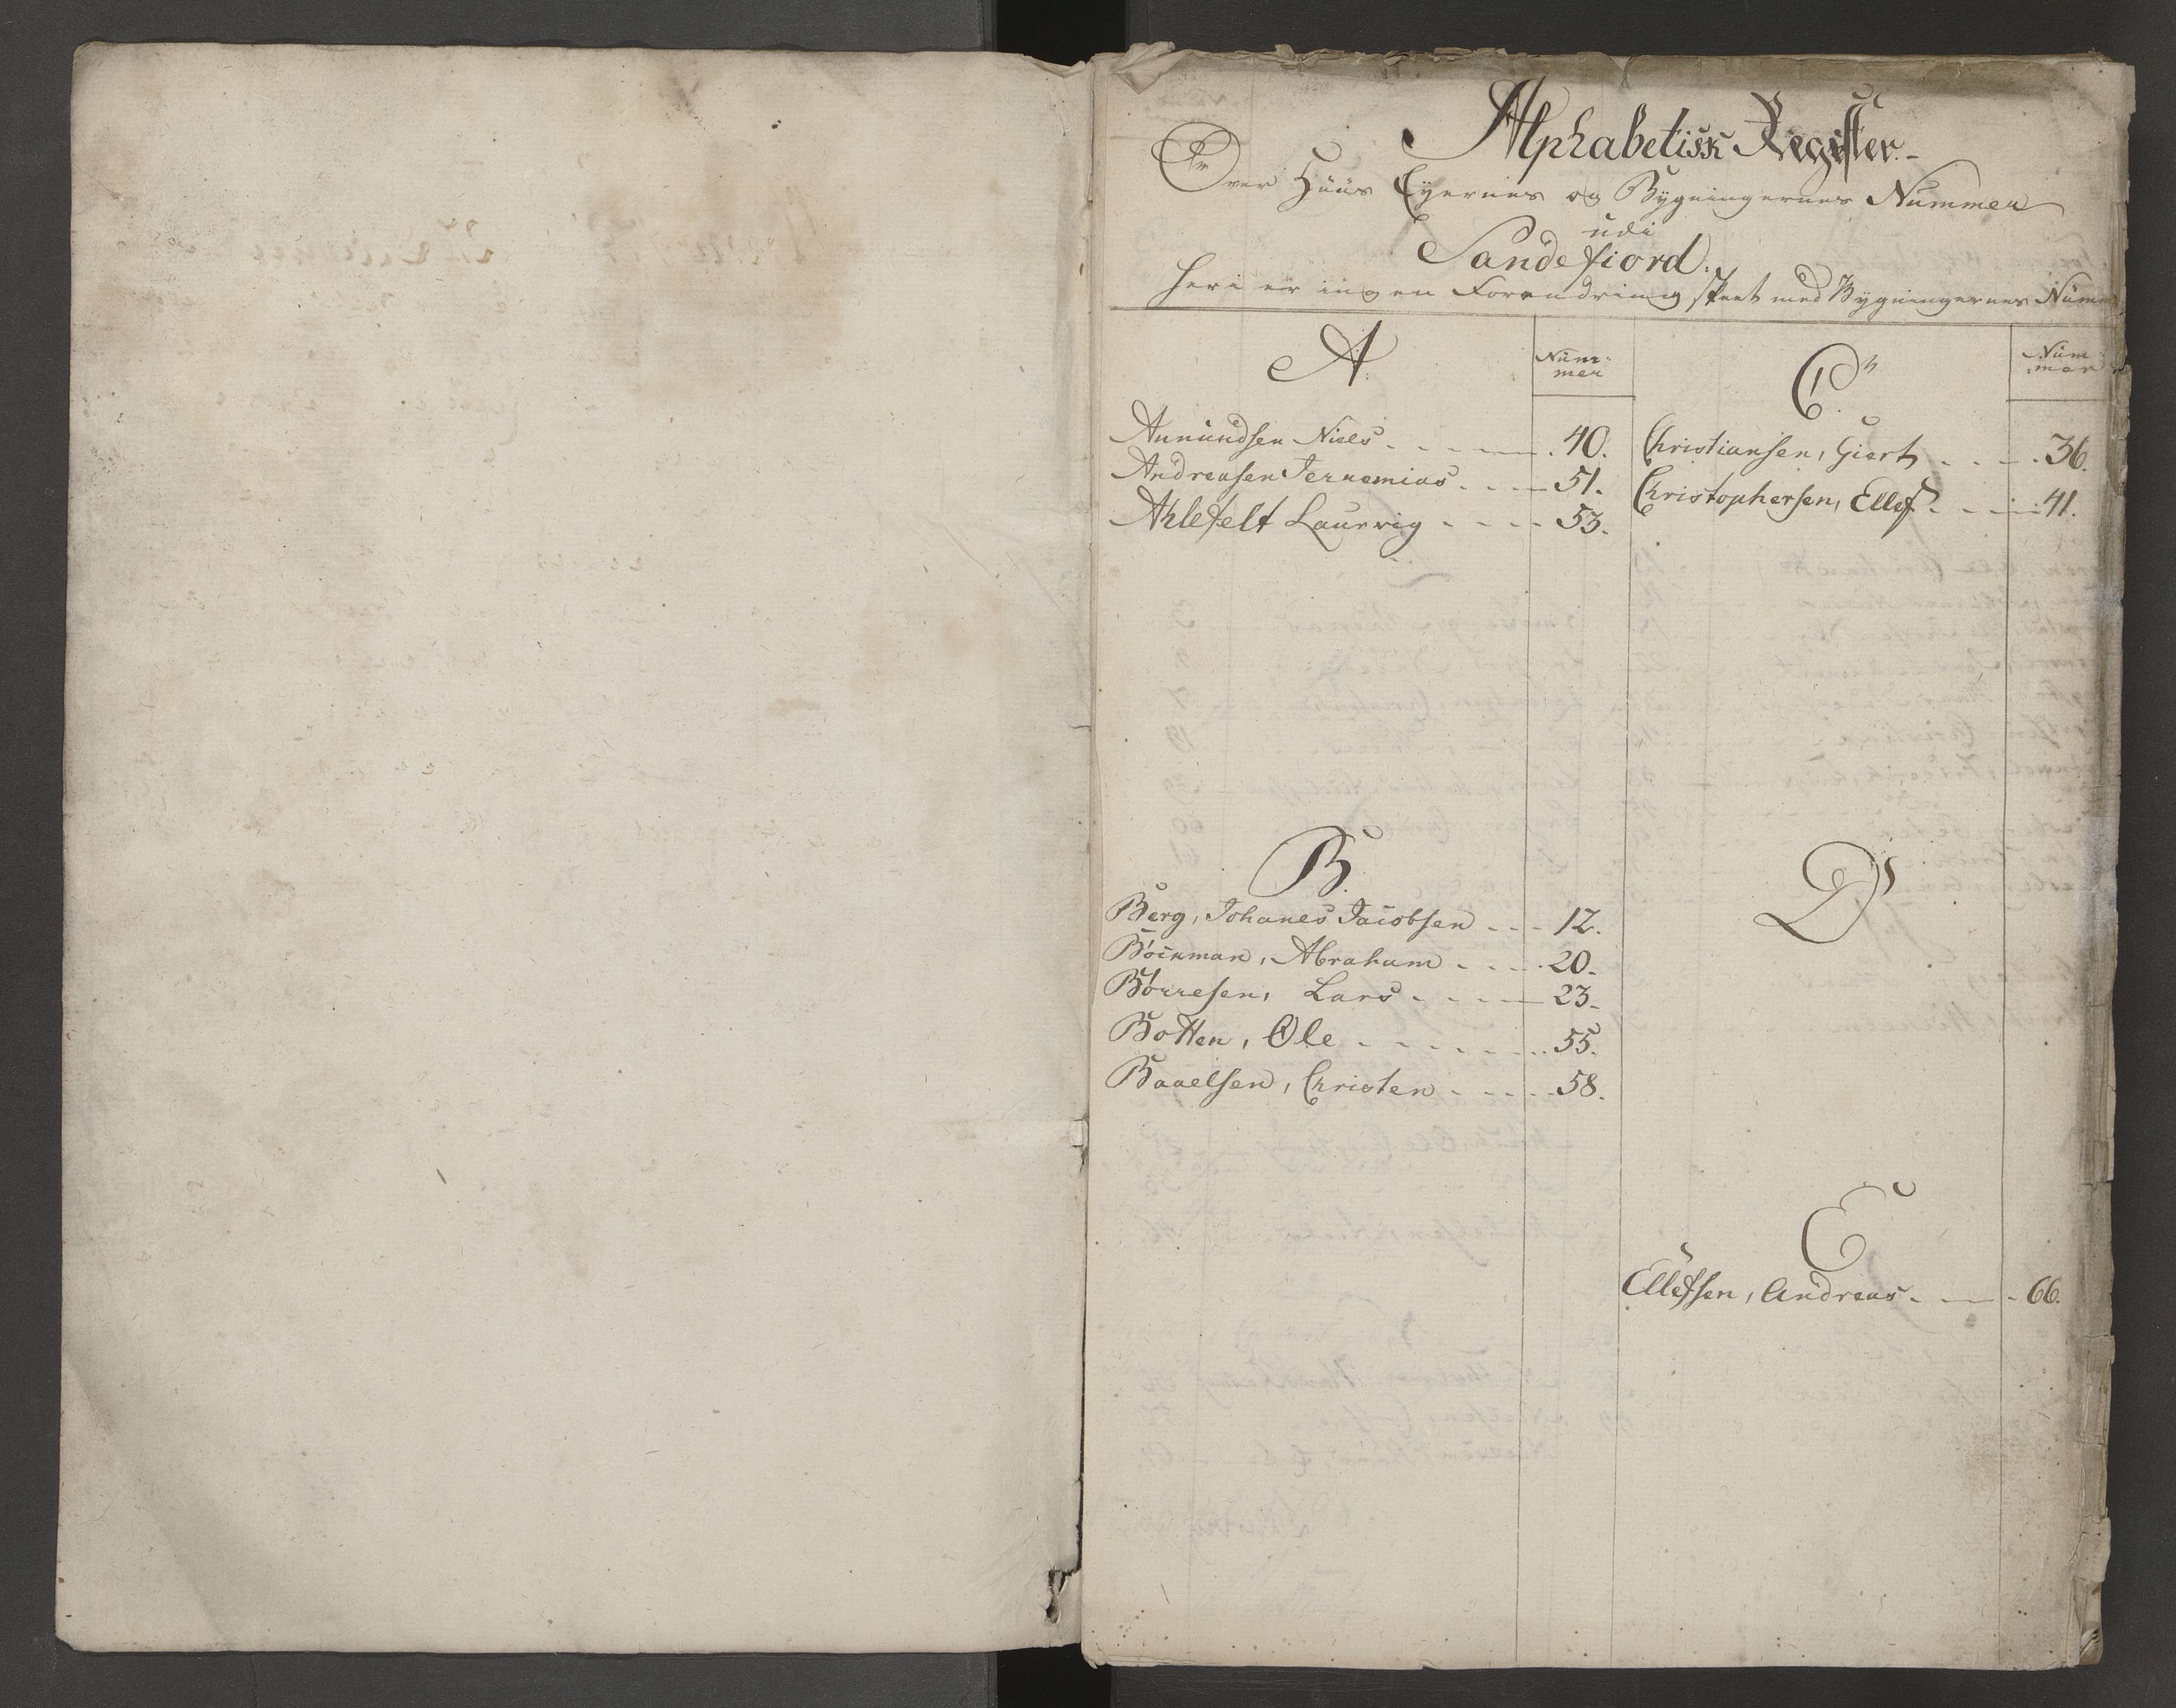 Alphabetisk Register.
Over Huus Eyernes og Bygningernes Nummer
udi
Sandefiord.
heri er ingen Forandring skeet med Bygningernes Num
A.
Num-
mer
Amundsen Niels - - - - 40.
Andreasen Jeremias - - - - 51.
Ahlefelt Laurvig - - - - 53.
B.
Berg, Johanes Jacobsen - - - 12.
Böckman, Abraham - - - - 20.
Börresen, Lars - - - - 23.
Botten, Ole - - - - - - 55.
Baaelsen, Christen - - - - 58.
C.
Num-
mer
Christiansen, Giert - - - 36.
Christophersen, Ellef - - - 41.
D
E
Ellefsen, Andreas - - - 66.